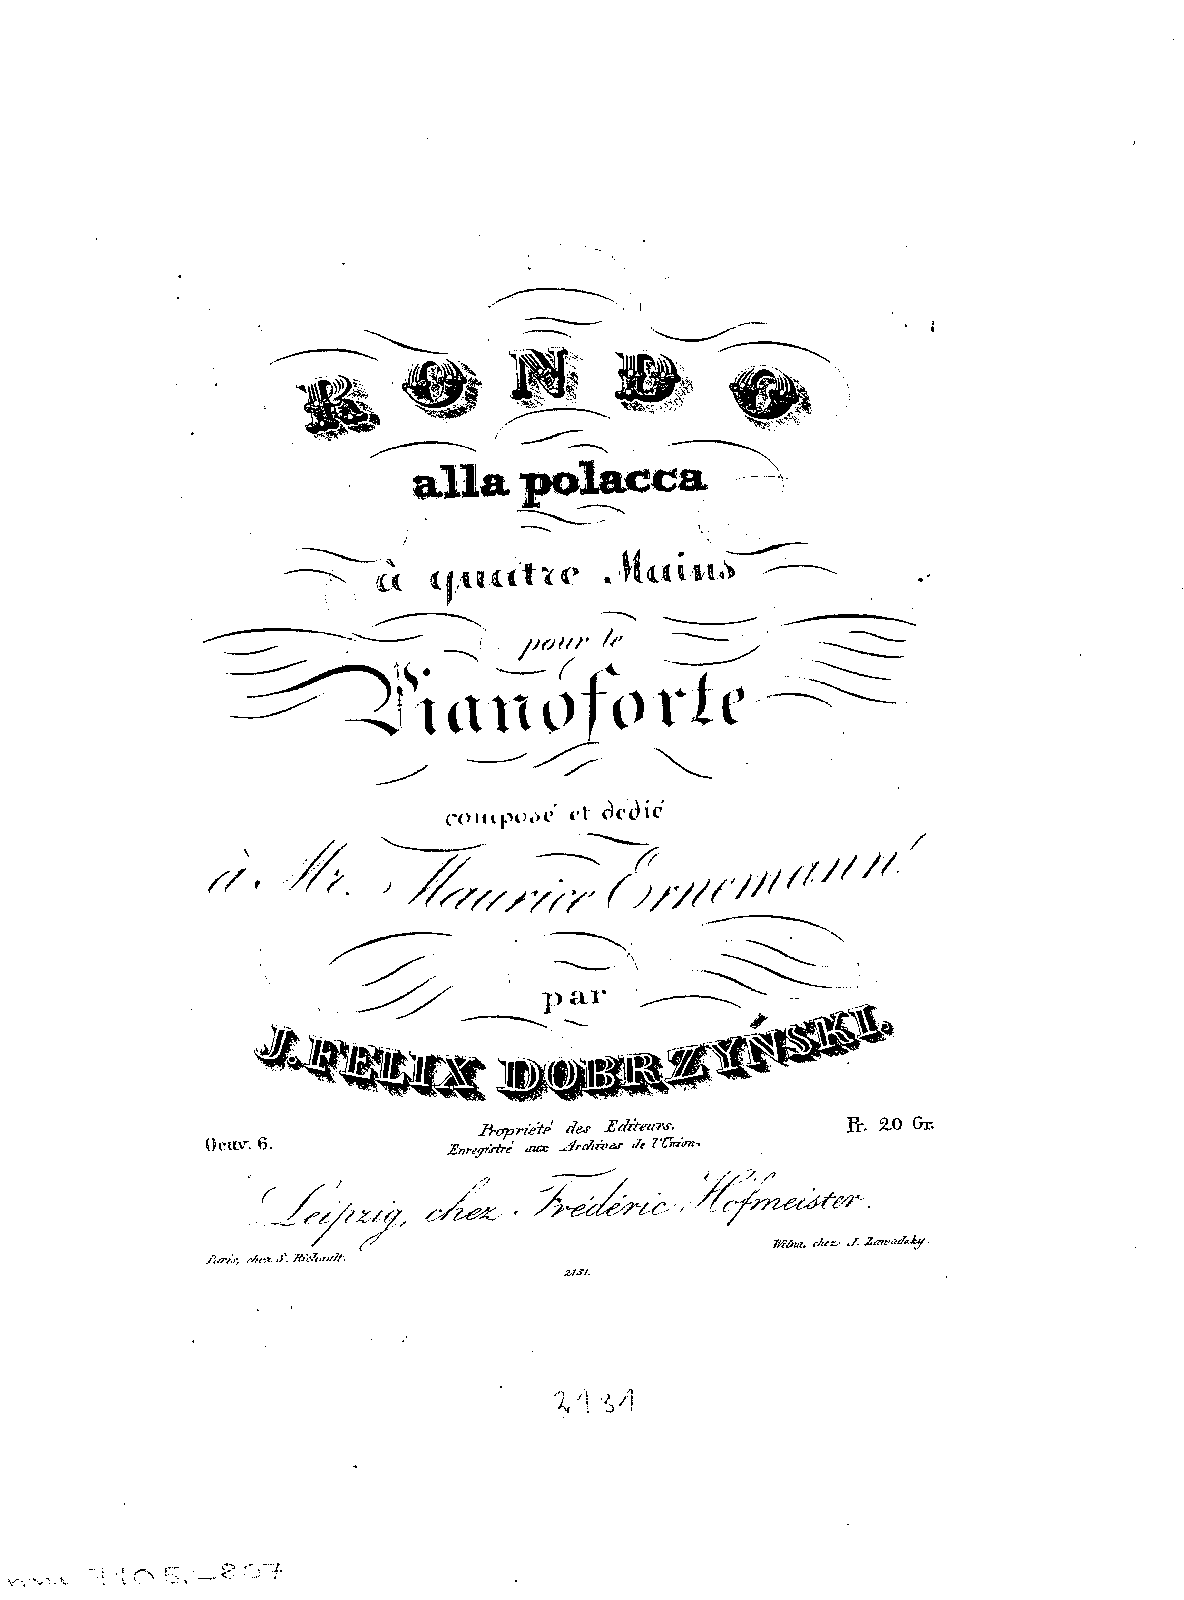 RONDO
alla polacca
à quatre Mains
pour le
Pianoforte
composé et dedié
à Mr. Maurice Ernemann
par
J. FELIX DOBRZYŃSKI.
Oeuv. 6.
Propriété des Editeurs.
Pr. 20 Gr.
Enregistré aux Archives de l'Union.
Leipzig, chez Frédéric Hofmeister.
Paris, chez S. Richault.
Wilna, chez J. Zawadzky.
2131.
2131
7105.-807